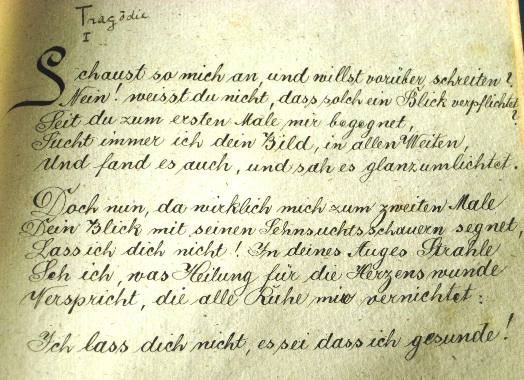 Tragödie
I
Schaust so mich an, und willst vorüber schreiten?
Nein! weisst du nicht, dass solch ein Blick verpflichtet?
Seit du zum ersten Male mir begegnet,
Sucht immer ich dein Bild, in allen Weiten,
Und fand es auch, und sah es glanzumlichtet.
Doch nun, da wirklich mich zum zweiten Male
Dein Blick mit seinen Sehnsuchtsschauern segnet,
Lass ich dich nicht! In deines Auges Strahle
Seh ich, was Heilung für die Herzenswunde
Verspricht, die alle Ruhe mir vernichtet:
Ich lass dich nicht, es sei dass ich gesunde!